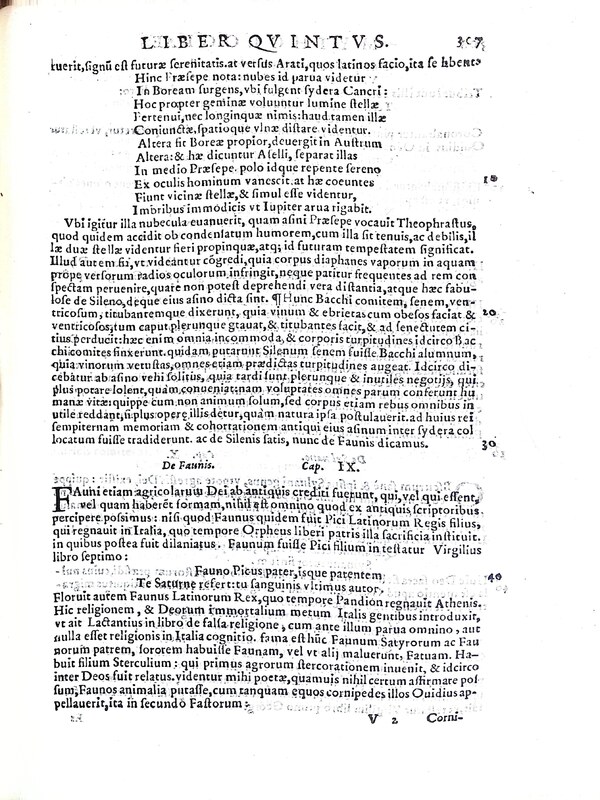 LIBER QVINTVS. 307
tuerit, signũ est futuræ serenitatis. at versus Arati, quos latinos facio, ita se habent:
Hinc Præsepe nota: nubes id parua videtur
In Boream surgens, vbi fulgent sydera Cancri:
Hoc propter geminæ voluuntur lumine stellæ
Pertenui, nec longinquæ nimis: haud tamen illæ
Coniunctæ, spatioque vlnæ distare videntur.
Altera sit Boreæ propior, deuergit in Austrum
Altera: & hæ dicuntur Aselli, separat illas
In medio Præsepe. polo idque repente sereno
Ex oculis hominum vanescit. at hæ coeuntes 10
Fiunt vicinæ stellæ, & simul esse videntur,
Imbribus immodicis vt Iupiter arua rigabit.
Vbi igitur illa nubecula euanuerit, quam asini Præsepe vocauit Theophrastus,
quod quidem accidit ob condensatum humorem, cum illa sit tenuis, ac debilis, il
læ duæ stellæ videntur fieri propinquæ, atq; id futuram tempestatem significat.
Illud autem fit, vt videantur cõgredi, quia corpus diaphanes vaporum in aquam
prope versorum radios oculorum infringit, neque patitur frequentes ad rem con
spectam peruenire, quare non potest deprehendi vera distantia, atque hæc fabu-
lose de Sileno, deque eius asino dicta sint. ¶ Hunc Bacchi comitem, senem, ven-
tricosum, titubantemque dixerunt, quia vinum & ebrietas cum obesos faciat & 20
ventricosos, tum caput plerunque grauat, & titubantes facit, & ad senectutem ci-
tius perducit: hæc enim omnia incommoda, & corporis turpitudines idcirco Bac
chi comites finxerunt. quidam putarunt Silenum senem fuisse Bacchi alumnum,
quia vinorum vetustas, omnes etiam prædictas turpitudines augeat. Idcirco di-
cebatur ab asino vehi solitus, quia tardi sunt plerunque & inutiles negotijs, qui
plus potare solent, quam conueniat: nam voluptates omnes parum conferunt hu
manæ vitæ: quippe cum non animum solum, sed corpus etiam rebus omnibus in
utile reddant, si plus operę illis detur, quàm natura ipsa postulauerit. ad huius rei
sempiternam memoriam & cohortationem antiqui eius asinum inter sydera col
locatum fuisse tradiderunt. ac de Silenis satis, nunc de Faunis dicamus. 30
De Faunis. Cap. IX.
FAuni etiam agricolarum Dei ab antiquis crediti fuerunt, qui, vel qui essent,
vel quam haberẽt formam, nihil est omnino quod ex antiquis scriptoribus
percipere possimus: nisi quod Faunus quidem fuit Pici Latinorum Regis filius,
qui regnauit in Italia, quo tempore Orpheus liberi patris illa sacrificia instituit.
in quibus postea fuit dilaniatus. Faunum fuisse Pici filium in testatur Virgilius
libro septimo:
Fauno Picus pater, isque parentem
Te Saturne refert: tu sanguinis vltimus autor. 40
Floruit autem Faunus Latinorum Rex, quo tempore Pandion regnauit Athenis.
Hic religionem, & Deorum immortalium metum Italis gentibus introduxit,
vt ait Lactantius in libro de falsa religione, cum ante illum parua omnino, aut
nulla esset religionis in Italia cognitio. fama est hũc Faunum Satyrorum ac Fau
norum patrem, sororem habuisse Faunam, vel vt alij maluerunt, Fatuam. Ha-
buit filium Sterculium: qui primus agrorum stercorationem inuenit, & idcirco
inter Deos fuit relatus. videntur mihi poetæ, quamuis nihil certum affirmare pos
sum, Faunos animalia putasse, cum tanquam equos cornipedes illos Ouidius ap-
pellauerit, ita in secundo Fastorum:
V 2 Corni-